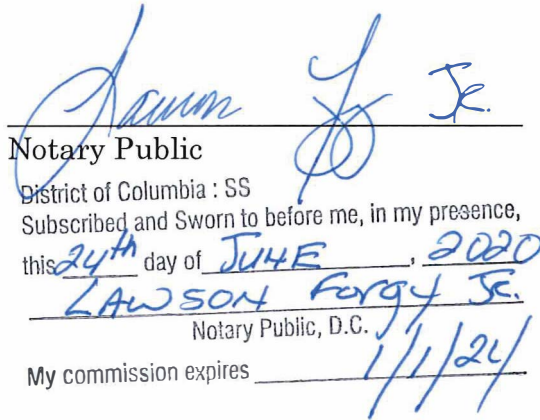 Jr.
Notary Public
District of Columbia : SS
Subscribed and Sworn to before me, in my presence,
this 24th day of JUNE, 2020
LAWSON Forgy Jr.
Notary Public, D.C.
My commission expires 1/1/24